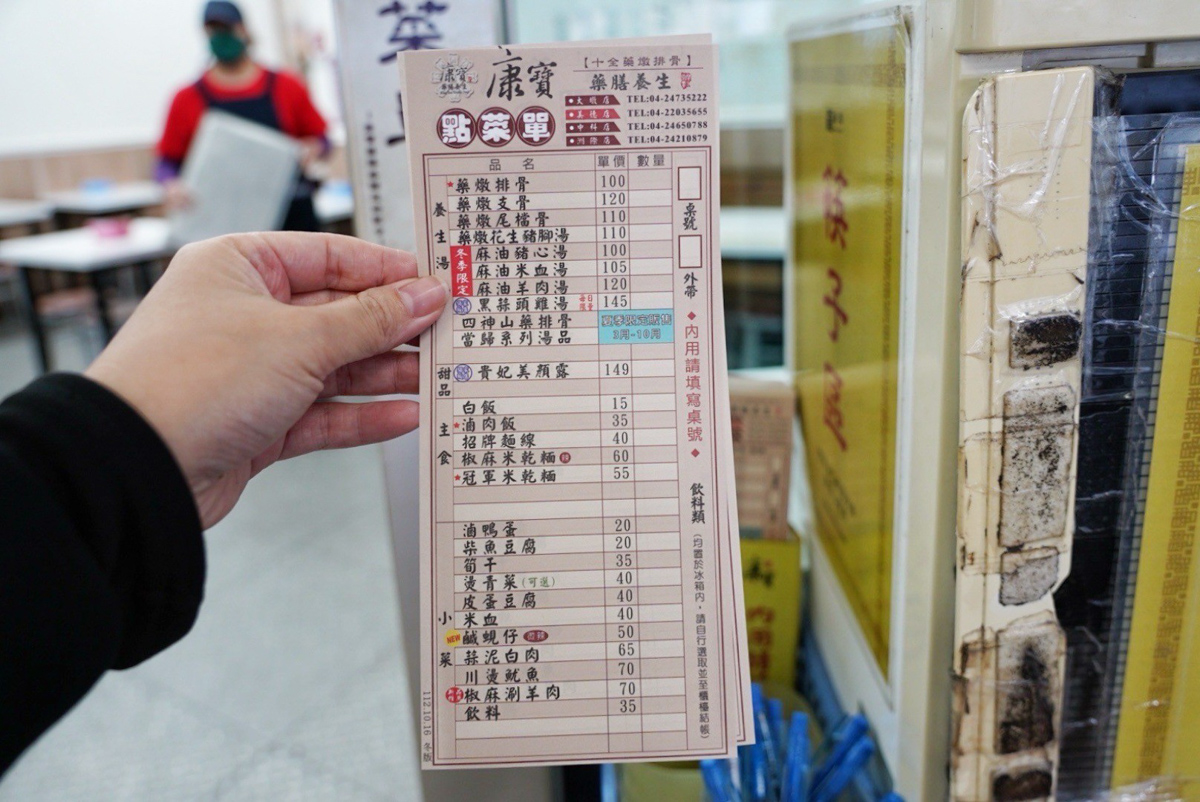 康寶
【十全藥燉排骨】
藥膳養生
點菜單
大順店 TEL:04-24735222
美德店 TEL:04-22035655
中科店 TEL:04-24650788
TEL:04-24210879
品名 單價 數量
養生湯
藥燉排骨 100
藥燉支骨 120
藥燉尾檔骨 110
藥燉花生豬腳湯 110
冬季限定
麻油豬心湯 100
麻油米血湯 105
麻油羊肉湯 120
黑蒜頭雞湯 每日限量 145
四神山藥排骨
當歸系列湯品
夏季限定販售
3月-10月
甜品
貴妃美顏露 149
主食
白飯 15
滷肉飯 35
招牌麵線 40
椒麻米乾麵 辣 60
冠軍米乾麵 55
小菜
滷鴨蛋 20
柴魚豆腐 20
筍干 35
燙青菜(可選) 40
皮蛋豆腐 40
米血 40
NEW 鹹蜆仔 50
蒜泥白肉 65
川燙魷魚 70
椒麻涮羊肉 70
飲料 35
桌號
外帶
◆內用請填寫桌號◆
飲料類(均置於冰箱內,請自行選取並至櫃檯結帳)
112.10.16 冬版